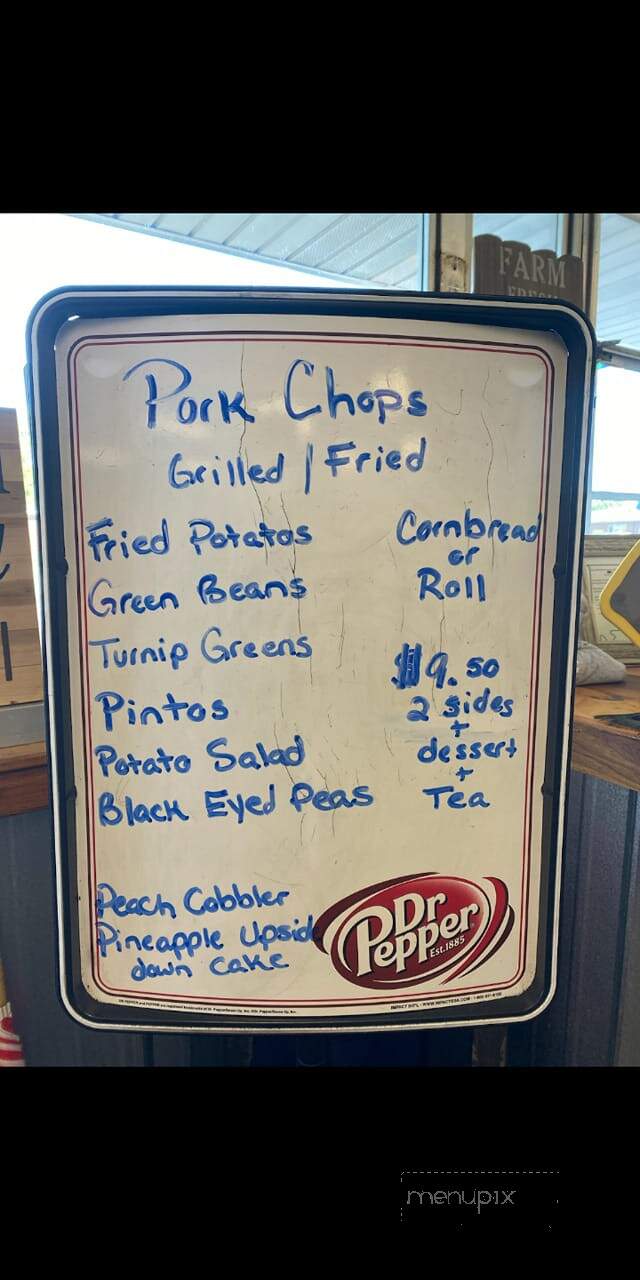 FARM
Pork Chops
Grilled / Fried
Fried Potatos
Green Beans
Turnip Greens
Pintos
Potato Salad
Black Eyed Peas
Cornbread
or
Roll
$9.50
2 sides
+
dessert
+
Tea
Peach Cobbler
Pineapple Upsid
down cake
Dr
Pepper
Est.1885
menupix